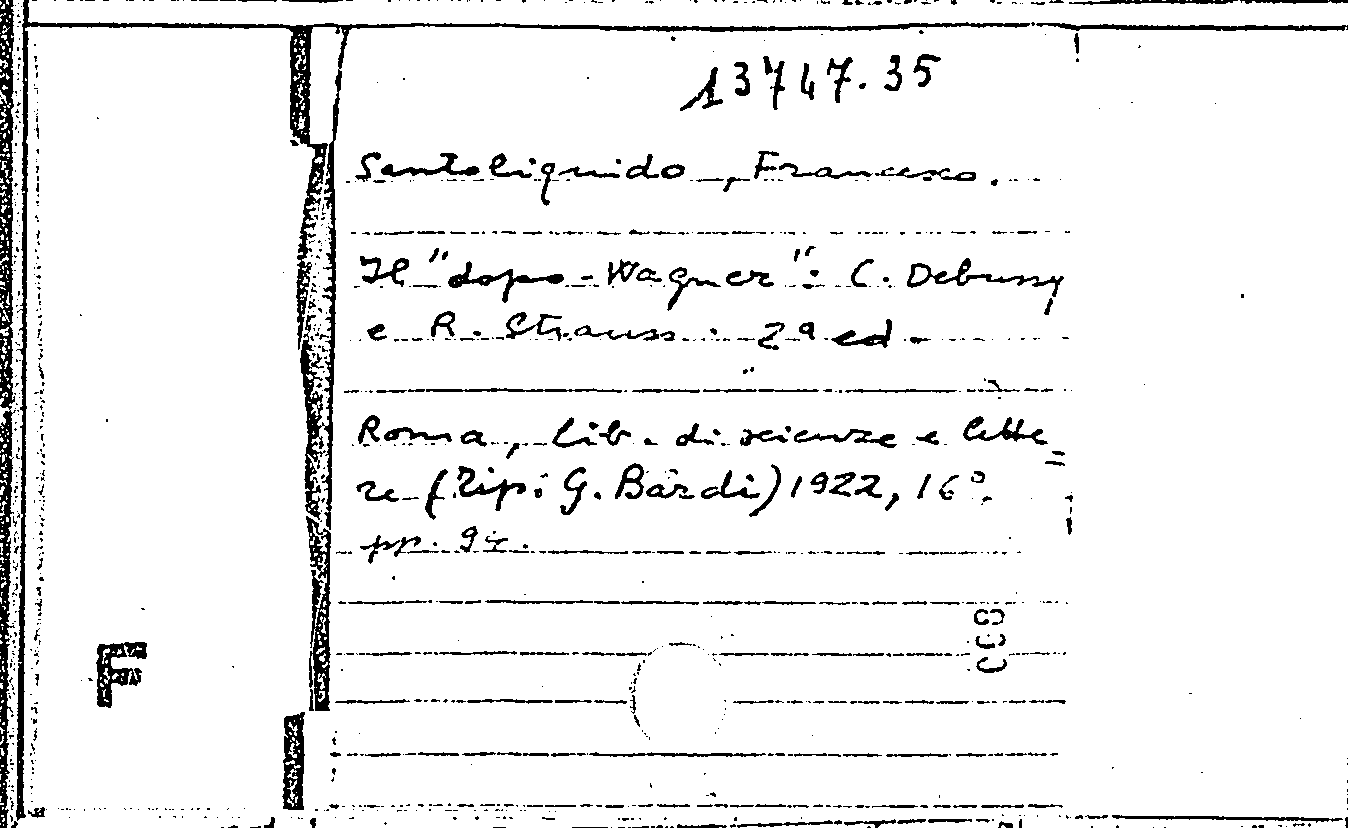 13747.35
Santoliquido, Francesco.
Il "dopo-Wagner": C. Debussy
e R. Strauss. 2ª ed.
Roma, Lib. di scienze e lette=
re (Tip. G. Bardi) 1922, 16°.
pp. 94.
F